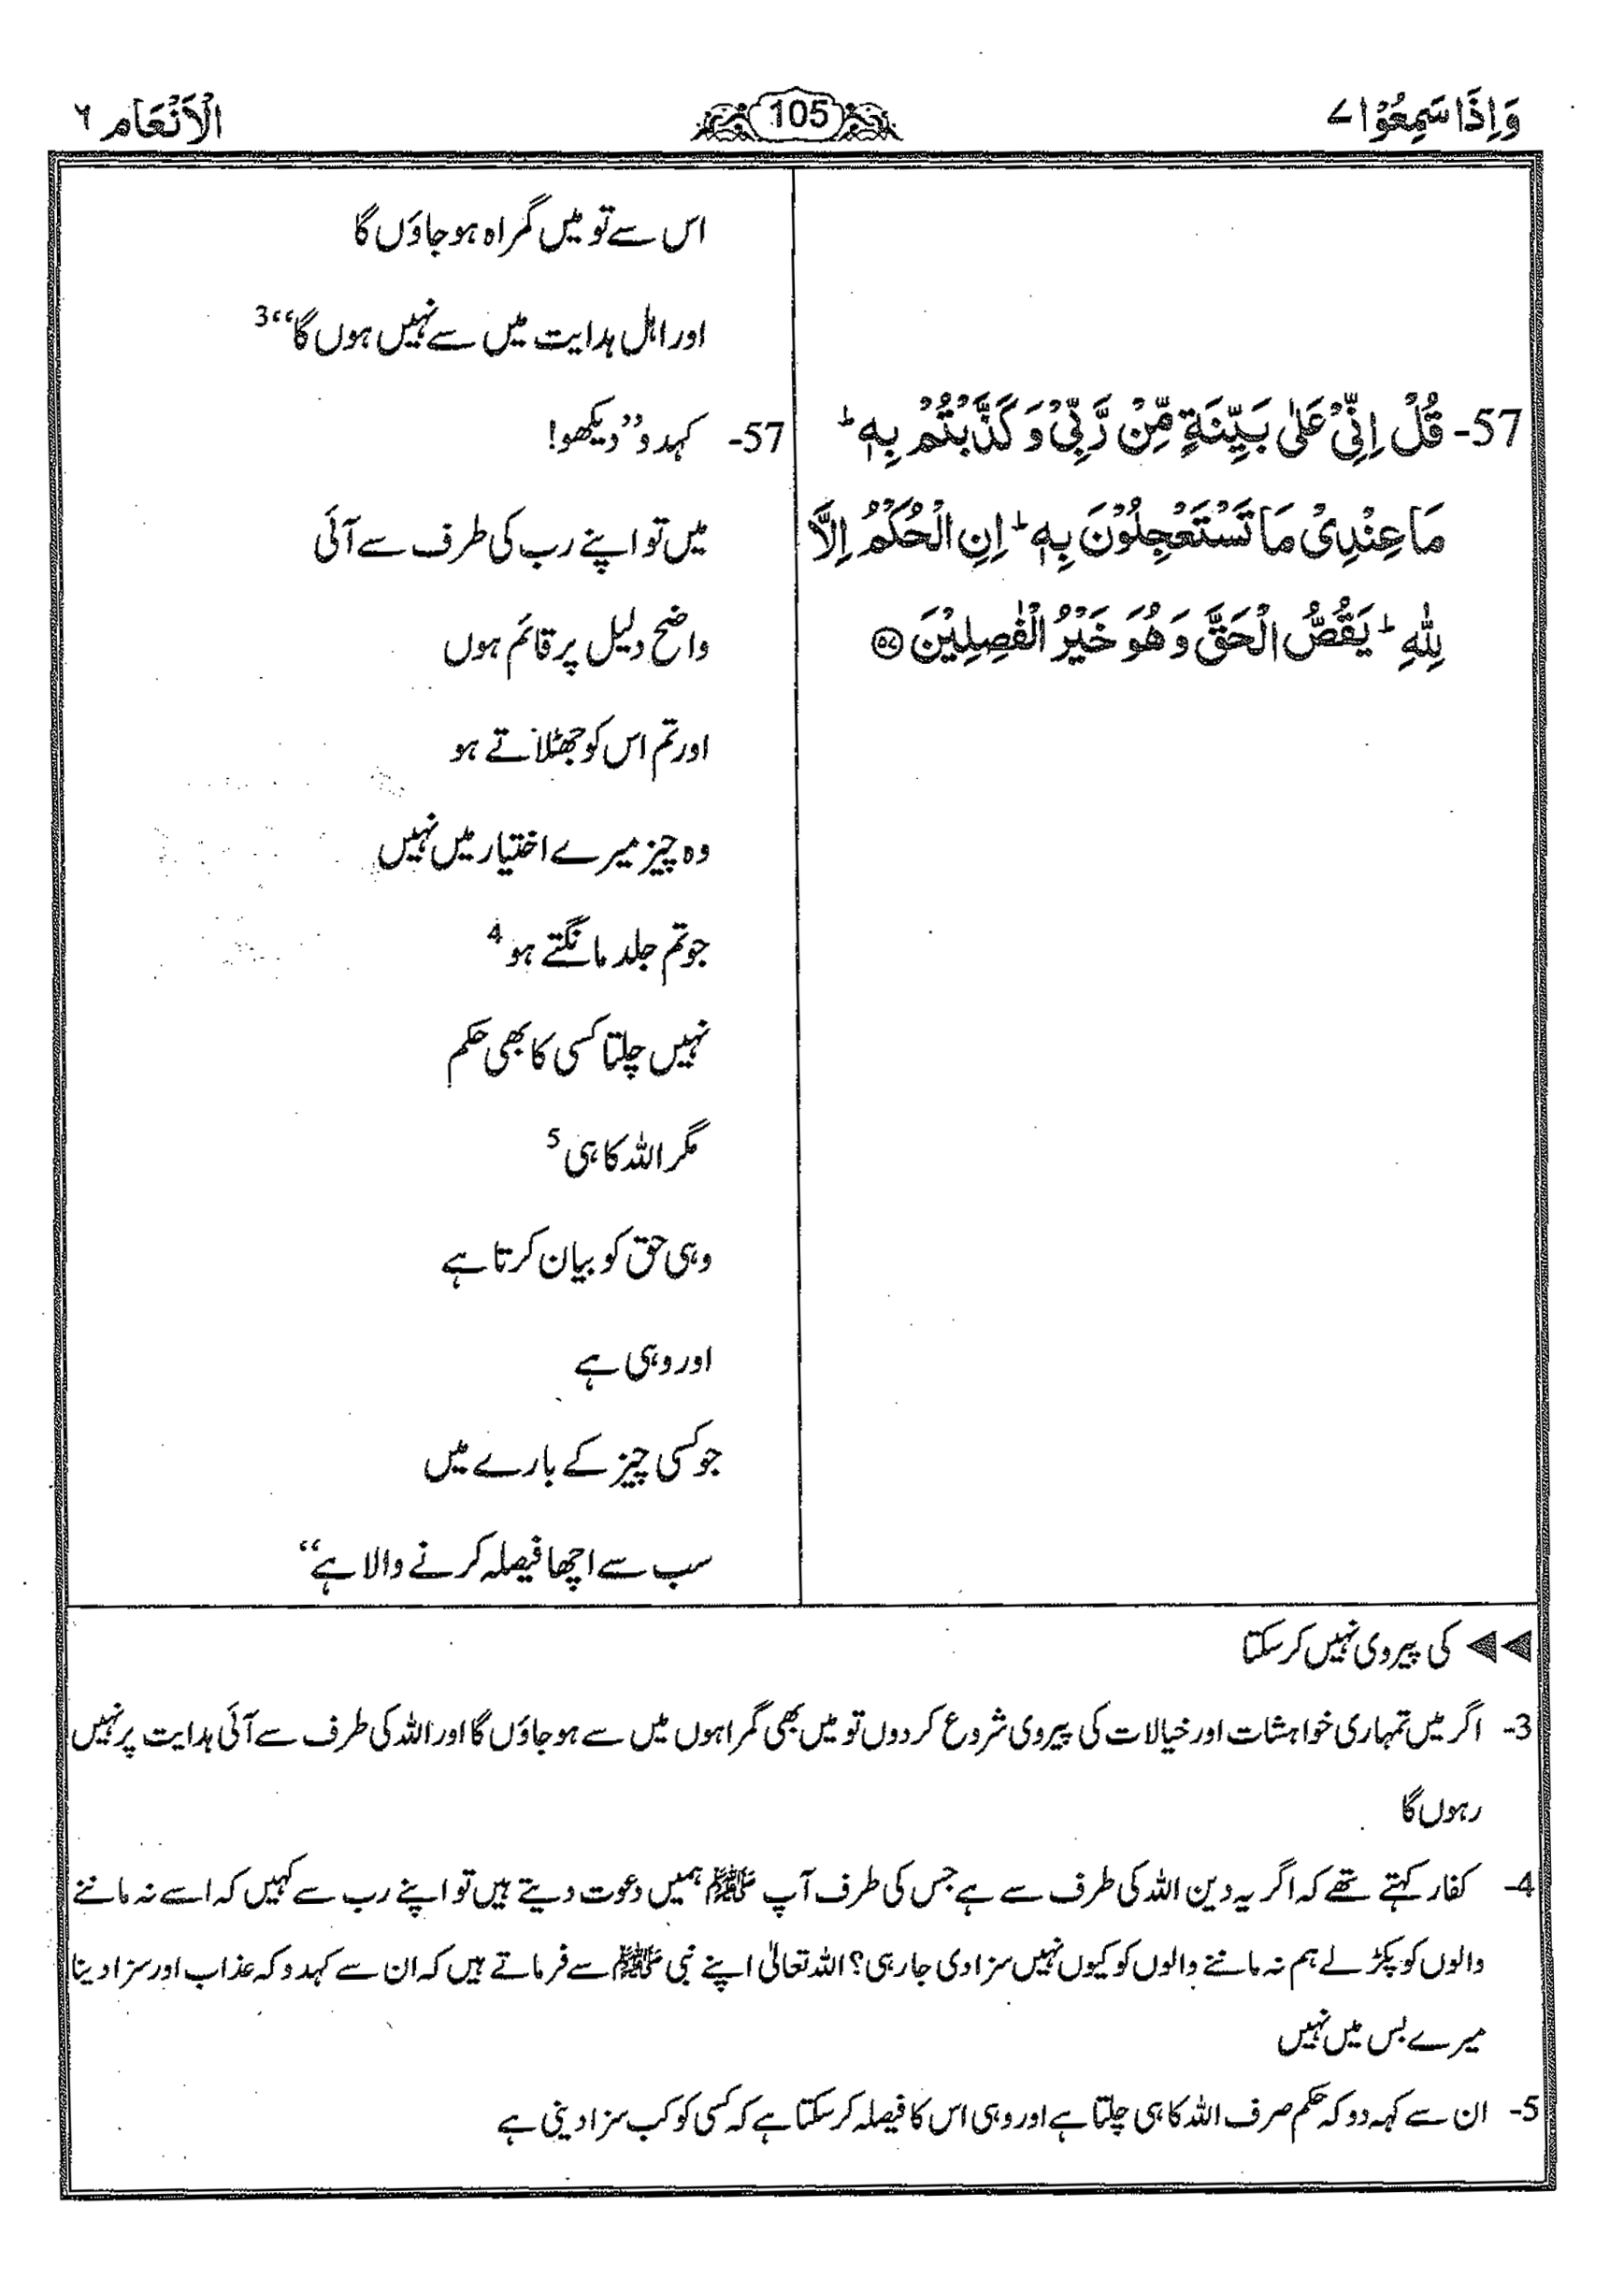 وَاِذَا سَمِعُوْا ۷
105
الْاَنْعَام ٦
57- قُلْ اِنِّیْ عَلٰی بَیِّنَةٍ مِّنْ رَّبِّیْ وَ كَذَّبْتُمْ بِهٖ ؕ
مَا عِنْدِیْ مَا تَسْتَعْجِلُوْنَ بِهٖ ؕ اِنِ الْحُكْمُ اِلَّا
لِلّٰهِ ؕ یَقُصُّ الْحَقَّ وَ هُوَ خَیْرُ الْفٰصِلِیْنَ ۵۷
اس سے تو میں گمراہ ہو جاؤں گا
اور اہل ہدایت میں سے نہیں ہوں گا‘‘ 3
57- کہدو ’’دیکھو!
میں تو اپنے رب کی طرف سے آئی
واضح دلیل پر قائم ہوں
اور تم اس کو جھٹلاتے ہو
وہ چیز میرے اختیار میں نہیں
جو تم جلد مانگتے ہو 4
نہیں چلتا کسی کا بھی حکم
مگر اللہ کا ہی 5
وہی حق کو بیان کرتا ہے
اور وہی ہے
جو کسی چیز کے بارے میں
سب سے اچھا فیصلہ کرنے والا ہے‘‘
◄◄ کی پیروی نہیں کر سکتا
3- اگر میں تمہاری خواہشات اور خیالات کی پیروی شروع کر دوں تو میں بھی گمراہوں میں سے ہو جاؤں گا اور اللہ کی طرف سے آئی ہدایت پر نہیں
رہوں گا
4- کفار کہتے تھے کہ اگر یہ دین اللہ کی طرف سے ہے جس کی طرف آپ ﷺ ہمیں دعوت دیتے ہیں تو اپنے رب سے کہیں کہ اسے نہ ماننے
والوں کو پکڑ لے ہم نہ ماننے والوں کو کیوں نہیں سزا دی جا رہی؟ اللہ تعالیٰ اپنے نبی ﷺ سے فرماتے ہیں کہ ان سے کہدو کہ عذاب اور سزا دینا
میرے بس میں نہیں
5- ان سے کہہ دو کہ حکم صرف اللہ کا ہی چلتا ہے اور وہی اس کا فیصلہ کر سکتا ہے کہ کسی کو کب سزا دینی ہے